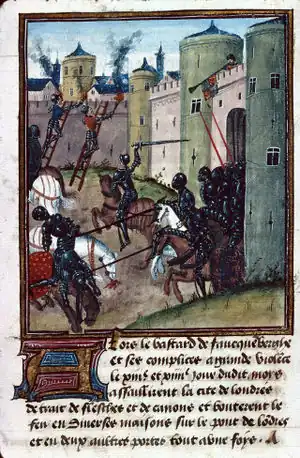 Lors le bastard de faucquēberghe
et ses complices a grande violēce
le xiiiᵉ et xiiiiᵉ jour dudit moys
assaillirent la cite de londres
de trait de flesches et de canons et bouterent le
feu en diverses maisons sur le pont de lōdres
et en deux aultres portes tout a une foys. A